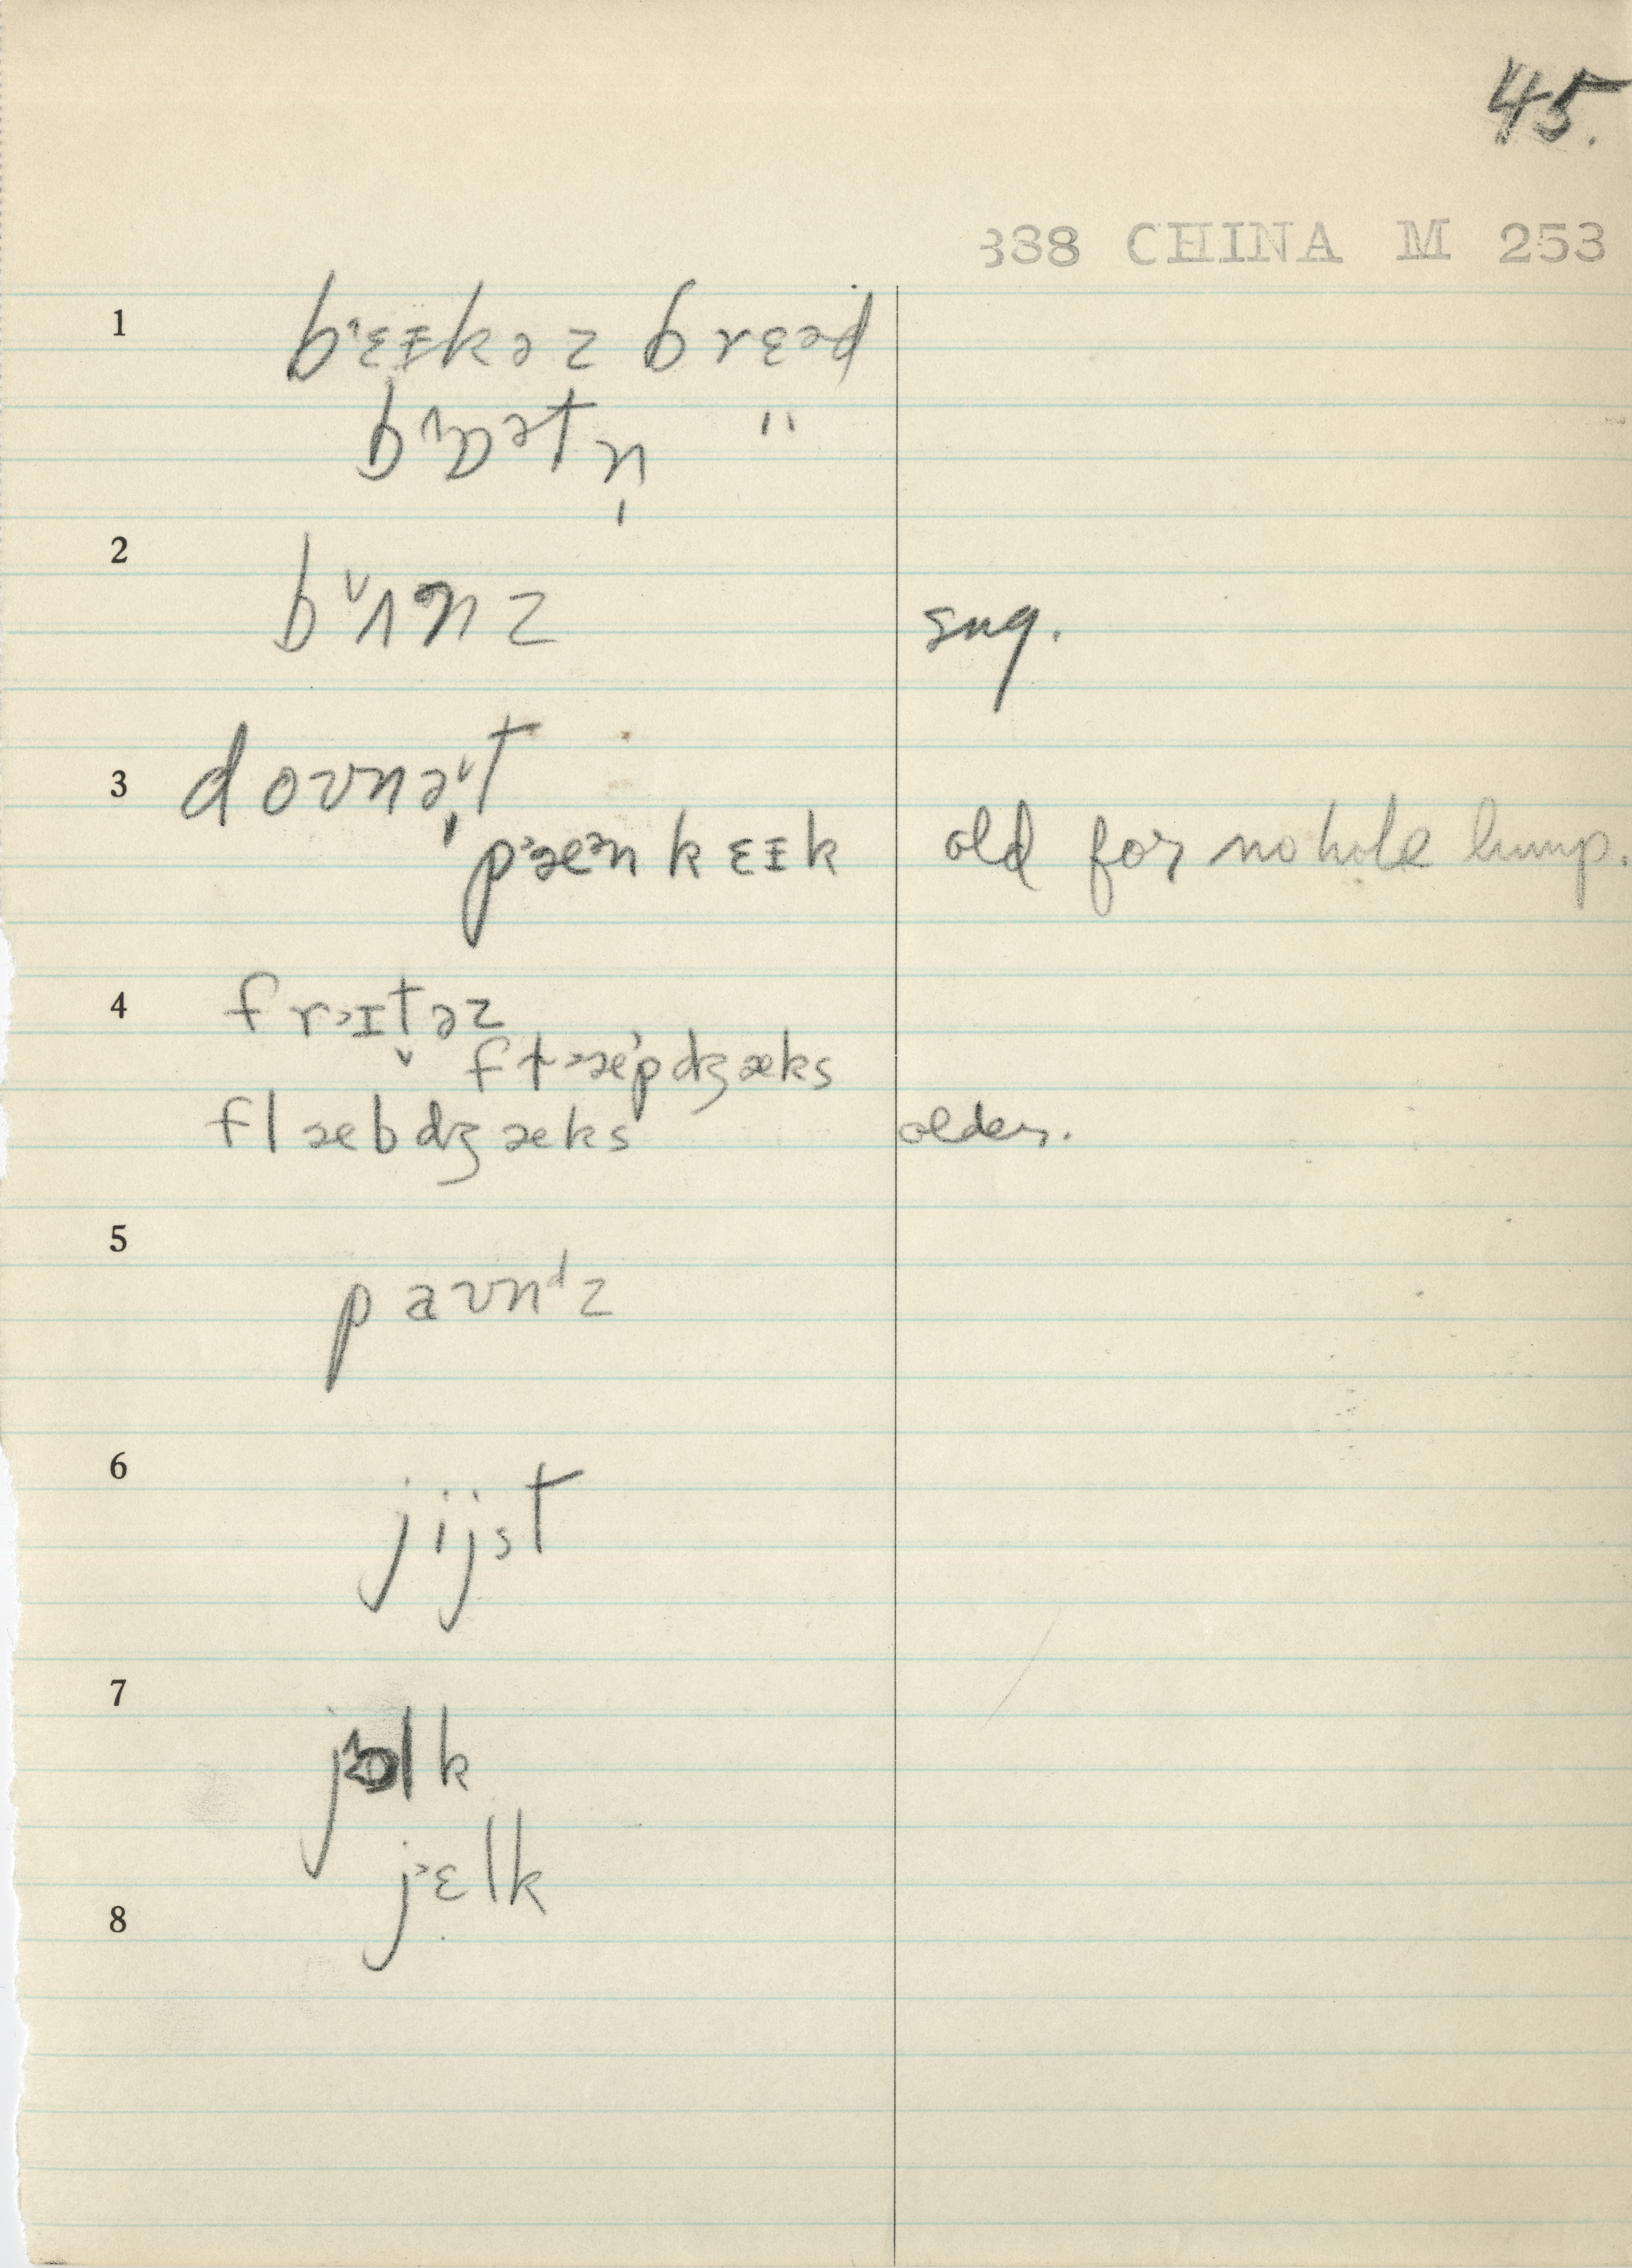 45.
338 CHINA M 253
1 b˃ɛɪkəz brɛəd
bɒətn̩ "
2 b˅ʌnz sng.
3 doʊnə˅t
p˃æ˃n kɛɪk old for no hole lump.
4 fr˃ɪt̬əz
fɫ˃æ˃pdʒæks
flæbdʒæks older.
5 paʊnᵈz
6 jijst
7 jolk
j˃ɛlk
8